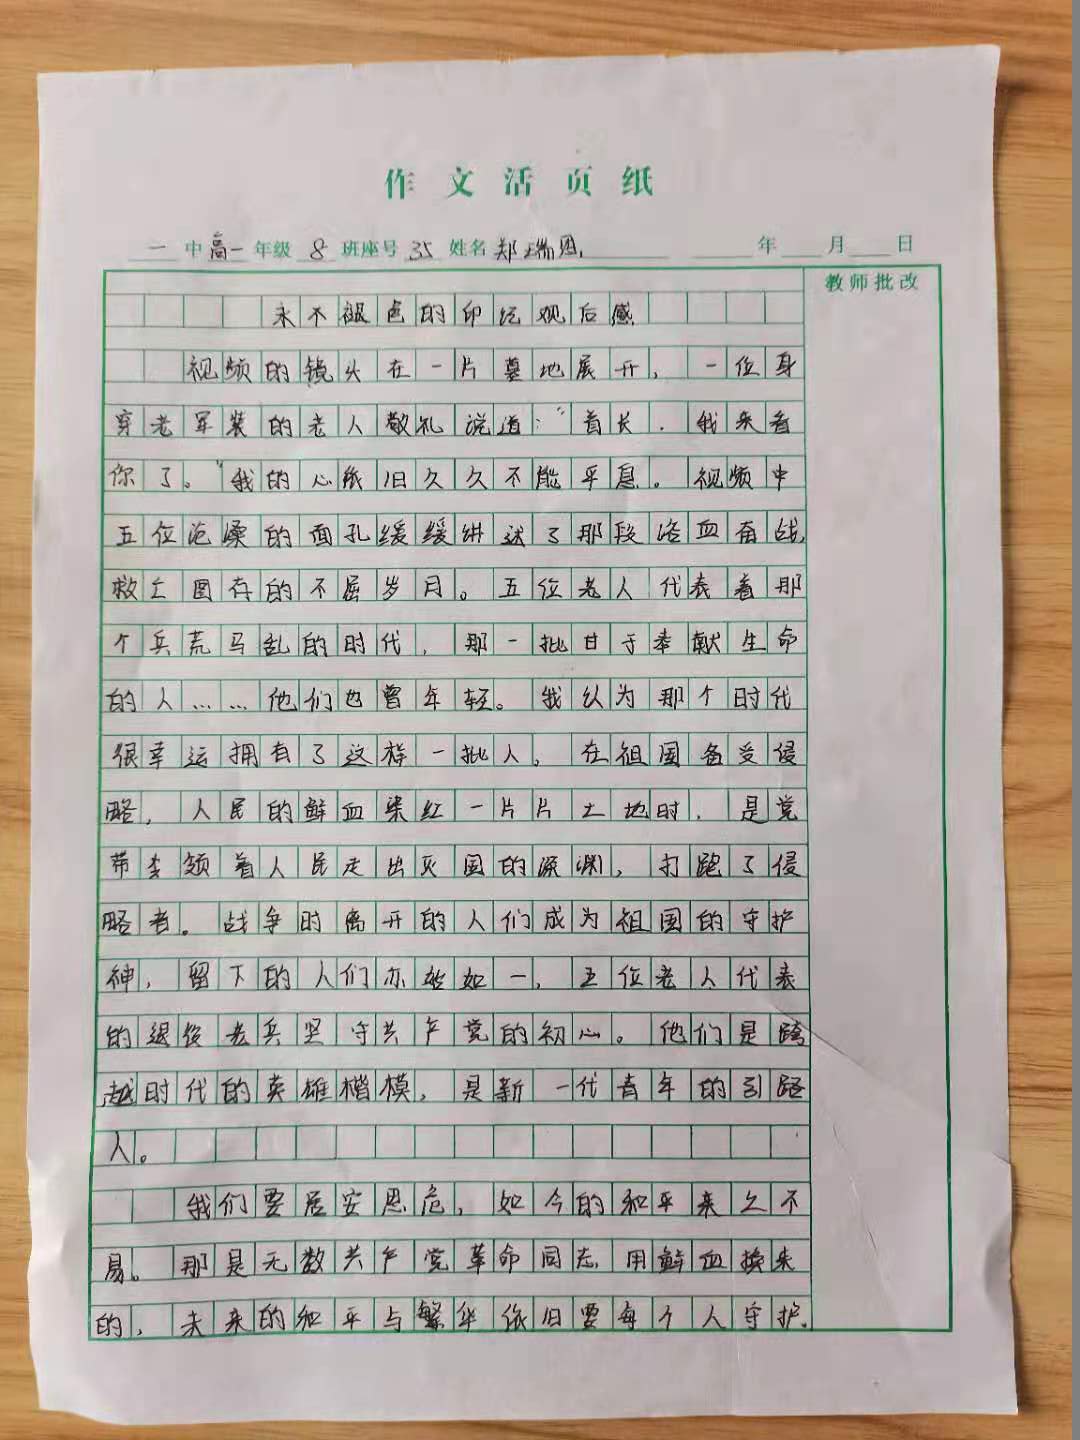 作文活页纸
一中高一年级 8 班座号 35 姓名 郑瑞图 年 月 日
教师批改
永不褪色的印记观后感
视频的镜头在一片墓地展开，一位身
穿老军装的老人敬礼说道：“首长，我来看
你了。”我的心纸旧久久不能平息。视频中
五位沧桑的面孔缓缓讲述了那段浴血奋战，
救亡图存的不屈岁月。五位老人代表着那
个兵荒马乱的时代，那一批甘于奉献生命
的人……他们也曾年轻。我认为那个时代
很幸运拥有了这样一批人。在祖国备受侵
略，人民的鲜血染红一片片土地时，是党
带领着人民走出灭国的深渊，打跑了侵
略者。战争时离开的人们成为祖国的守护
神，留下的人们亦始如一，五位老人代表
的退役老兵坚守共产党的初心。他们是跨
越时代的英雄楷模，是新一代青年的引路
人。
我们要居安思危，如今的和平来之不
易。那是无数共产党革命同志用鲜血换来
的，未来的和平与繁华依旧要每个人守护。